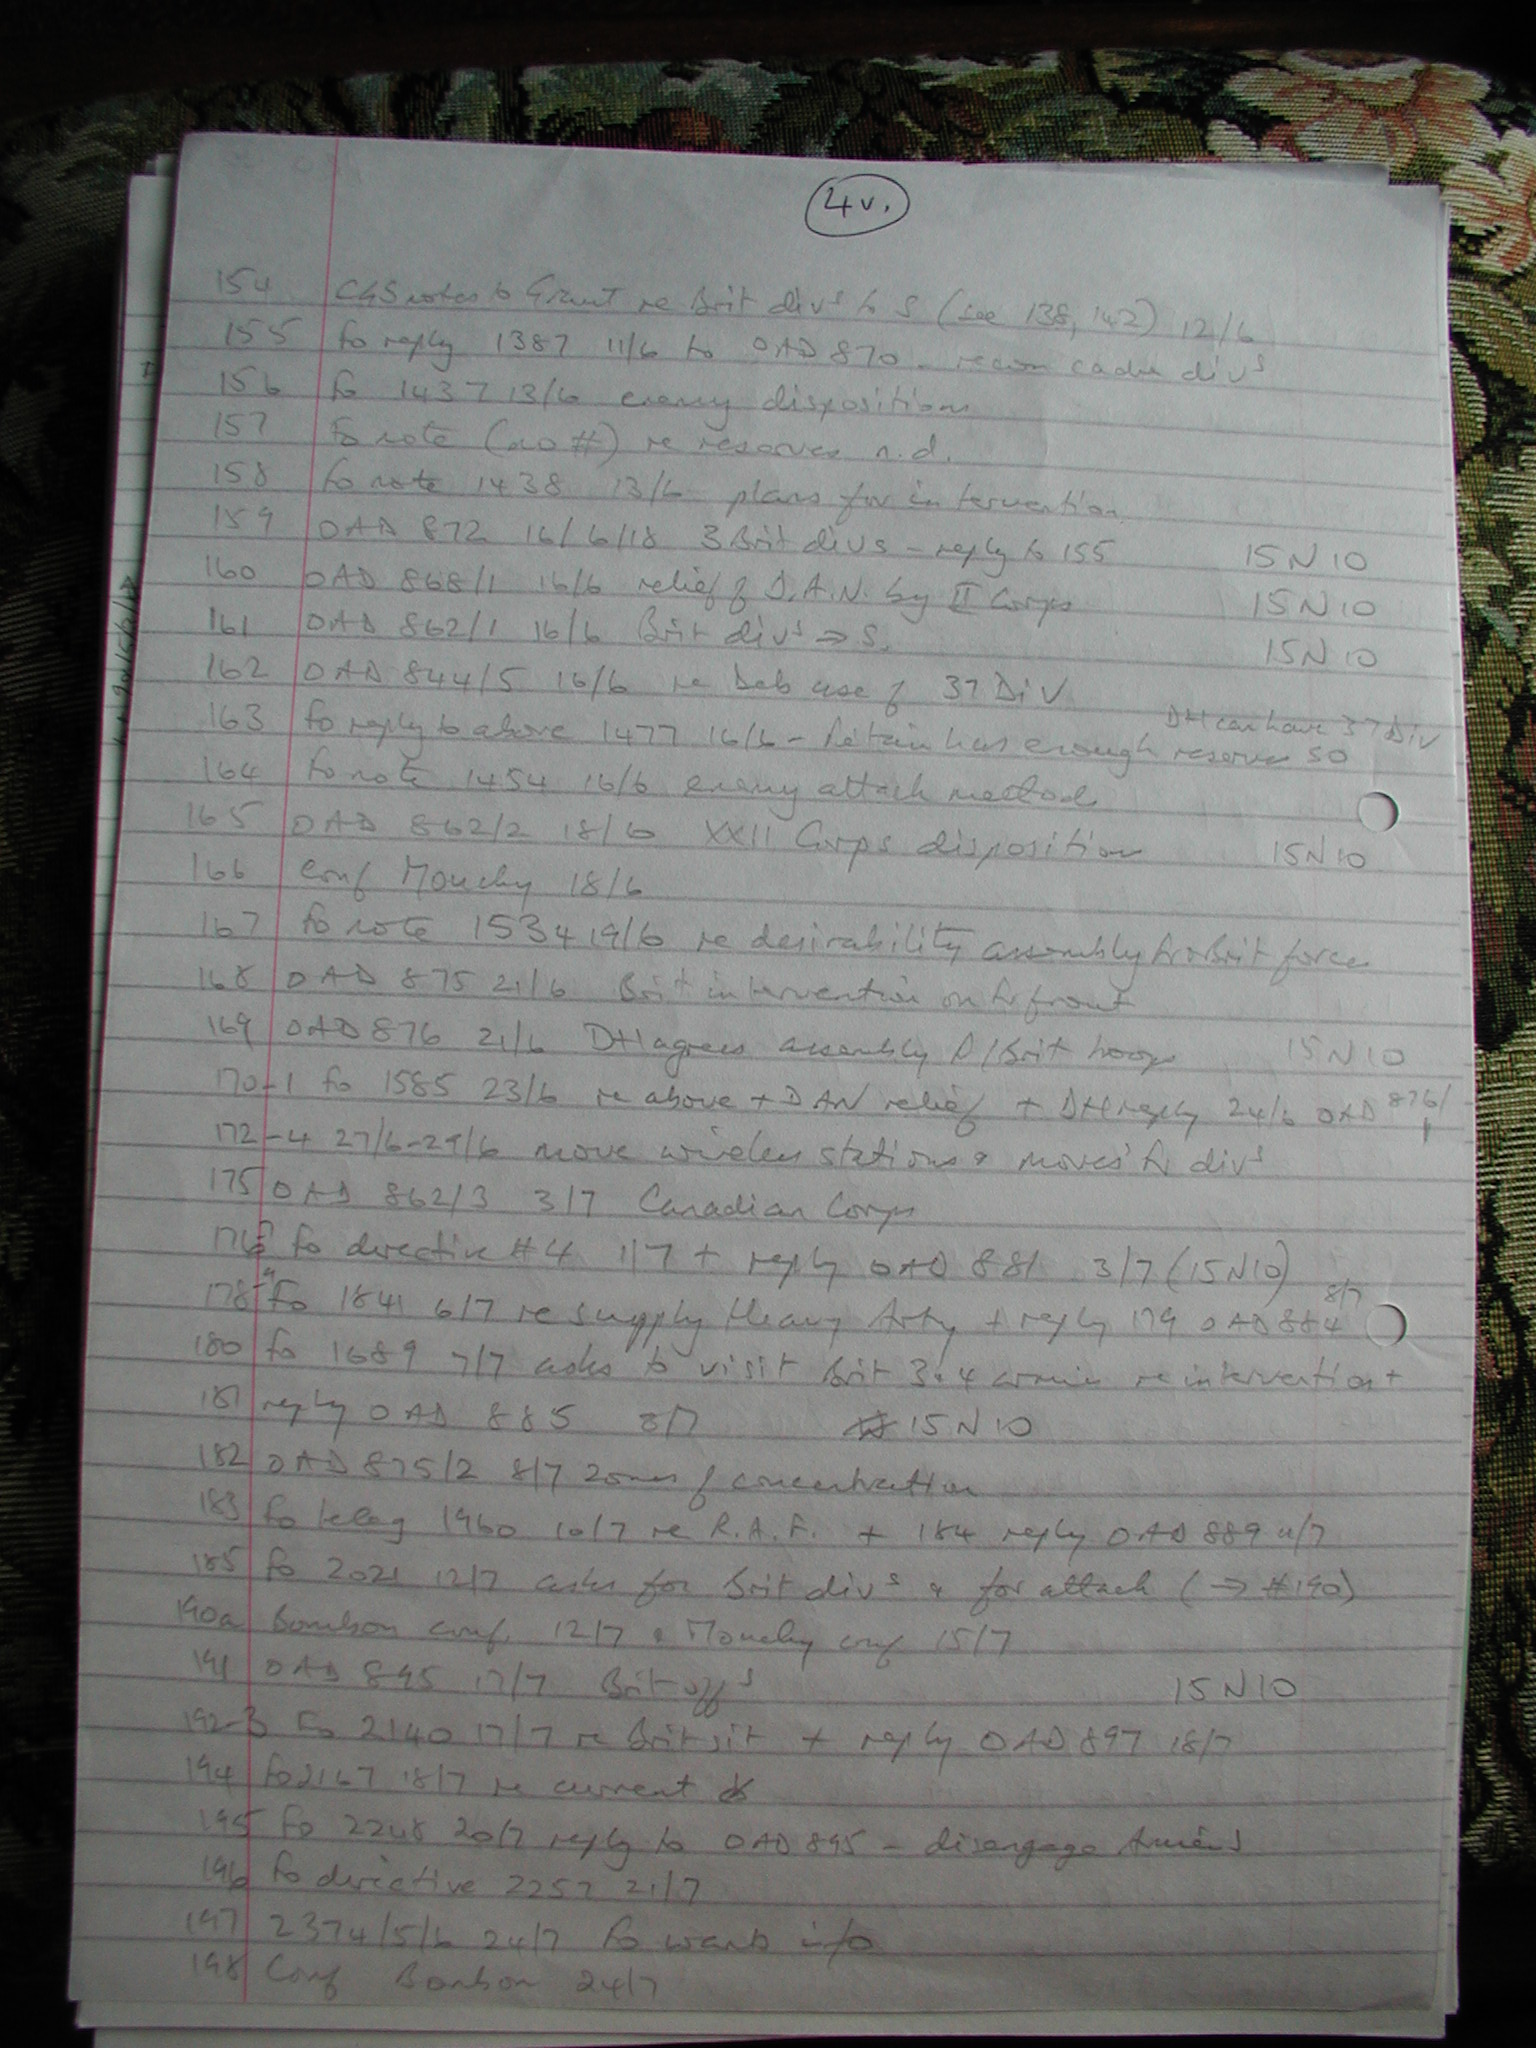 4v.
154 CGS notes to Grant re Brit divs to S (see 138, 142) 12/6
155 Fo reply 1387 11/6 to OAD 870 – recon cadre divs
156 Fo 1437 13/6 enemy dispositions
157 Fo note (no #) re reserves n.d.
158 Fo note 1438 13/6 plans for intervention
159 OAD 872 16/6/18 3 Brit divs – reply to 155 15N10
160 OAD 868/1 16/6 relief of D.A.N. by II Corps 15N10
161 OAD 862/1 16/6 Brit divs → S. 15N10
162 OAD 844/5 16/6 re use of 37 Div
DH can have 37 Div
163 Fo reply to above 1477 16/6 – Pétain has enough reserves so
164 Fo note 1454 16/6 enemy attack methods
165 OAD 862/2 18/6 XXII Corps disposition 15N10
166 Conf Mouchy 18/6
167 Fo note 1534 19/6 re desirability assembly Fr & Brit forces
168 OAD 875 21/6 Brit intervention on Fr front
169 OAD 876 21/6 DH agrees assembly Fr/Brit troops 15N10
170-1 Fo 1585 23/6 re above + DAN relief + DH reply 24/6 OAD 876/1
172-4 27/6-29/6 move wireless stations & moves Fr divs
175 OAD 862/3 3/7 Canadian Corps
176-7 Fo directive #4 1/7 + reply OAD 881 3/7 (15N10)
178-9 Fo 1841 6/7 re supply Heavy Arty + reply 179 OAD 884 8/7
180 Fo 1689 7/7 asks to visit Brit 3 & 4 armies re intervention +
181 reply OAD 885 8/7 15N10
182 OAD 875/2 8/7 zones of concentration
183 Fo teleg 1960 10/7 re R.A.F. + 184 reply OAD 889 11/7
185 Fo 2021 12/7 asks for Brit divs & for attack (→ #190)
190a Bombon conf. 12/7 & Mouchy conf 15/7
191 OAD 895 17/7 Brit offs 15N10
192-3 Fo 2140 17/7 re Brit sit + reply OAD 897 18/7
194 Fo 2167 18/7 re current
195 Fo 2248 20/7 reply to OAD 895 – disengage Amiens
196 Fo directive 2257 21/7
197 2374/5/6 24/7 Fo wants info
198 Conf Bombon 24/7